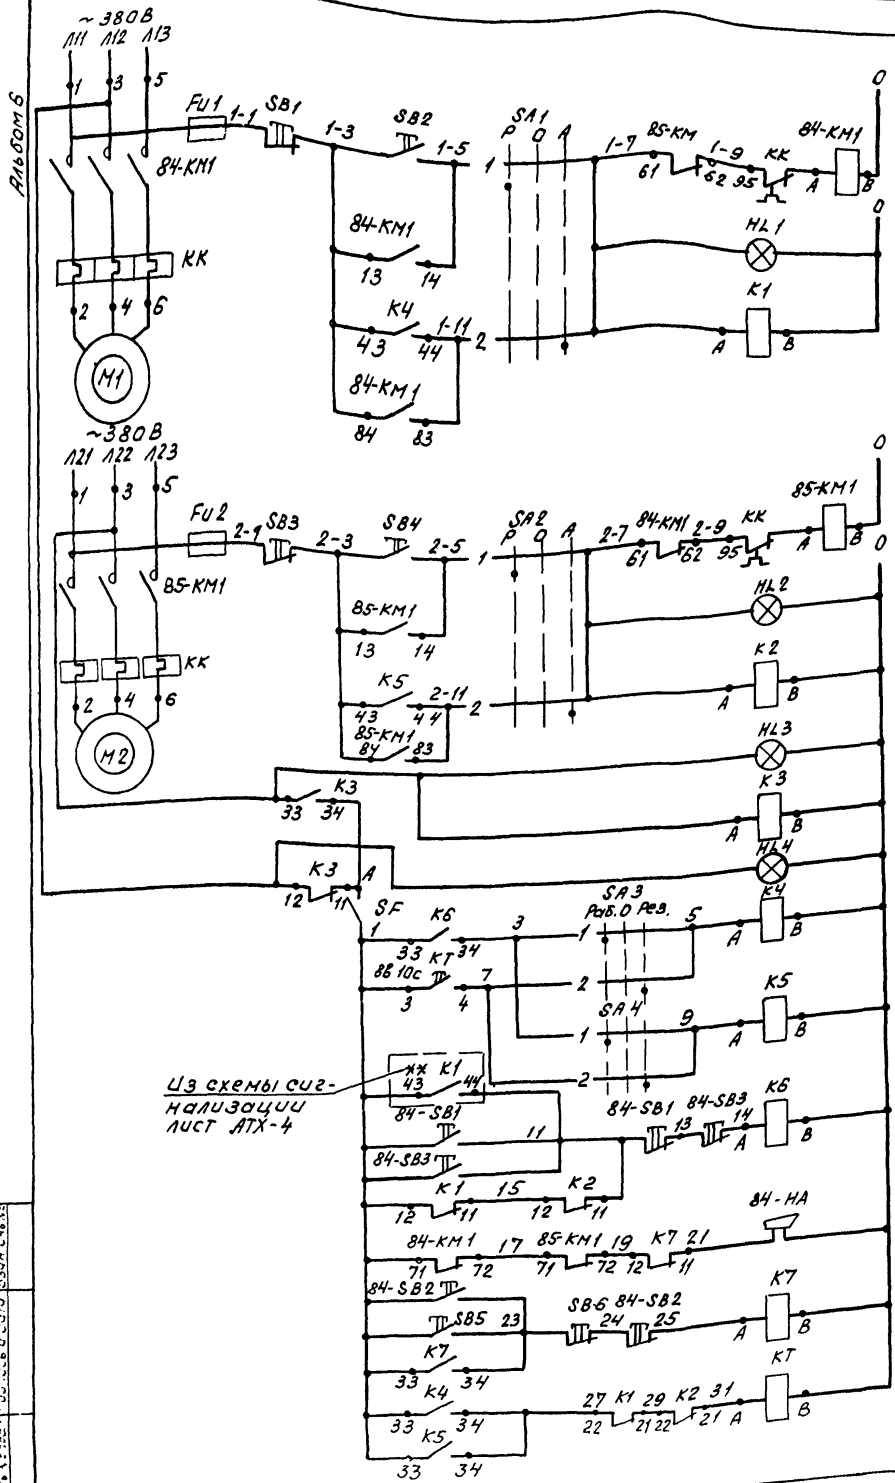 Альбом 6
~380В
Л11 Л12 Л13
1 3 5
FU1 1-1 SB1 1-3 SB2 1-5 1
SA1
Р О А
1-7 85-КМ 1-9 КК 84-КМ1 0
61 62 95 А В
84-КМ1
84-КМ1
13 14
HL1
0
КК
К4 1-11
43 44 2
К1
А В
2 4 6
М1
84-КМ1
84 83
~380В
Л21 Л22 Л23
1 3 5
FU2 2-1 SB3 2-3 SB4 2-5 1
SA2
Р О А
2-7 84-КМ1 2-9 КК 85-КМ1 0
61 62 95 А В
0
85-КМ1
85-КМ1
13 14
HL2
КК
К5 2-11
43 44 2
К2
А В
2 4 6
М2
85-КМ1
84 83
HL3
К3
33 34
К3
А В
HL4
К3 А
12 11
SF
1 К6 3
33 34
SA3
Раб. О Рез.
1 5
К4
А В
8в 10с КТ 7
3 4 2
SA4
1 9
К5
А В
2
Из схемы сиг-
нализации
лист АТХ-4
** К1
43 44
84-SB1 11
84-SB3
84-SB1 13 84-SB3 14
К6
А В
К1 15 К2
12 11 12 11
84-КМ1 17 85-КМ1 19 К7 21
71 72 71 72 12 11
84-НА
84-SB2
SB5 23
SB-6 24 84-SB2 25
К7
А В
К7
33 34
К4
33 34
27 К1 29 К2 31
22 21 22 21
КТ
А В
К5
33 34